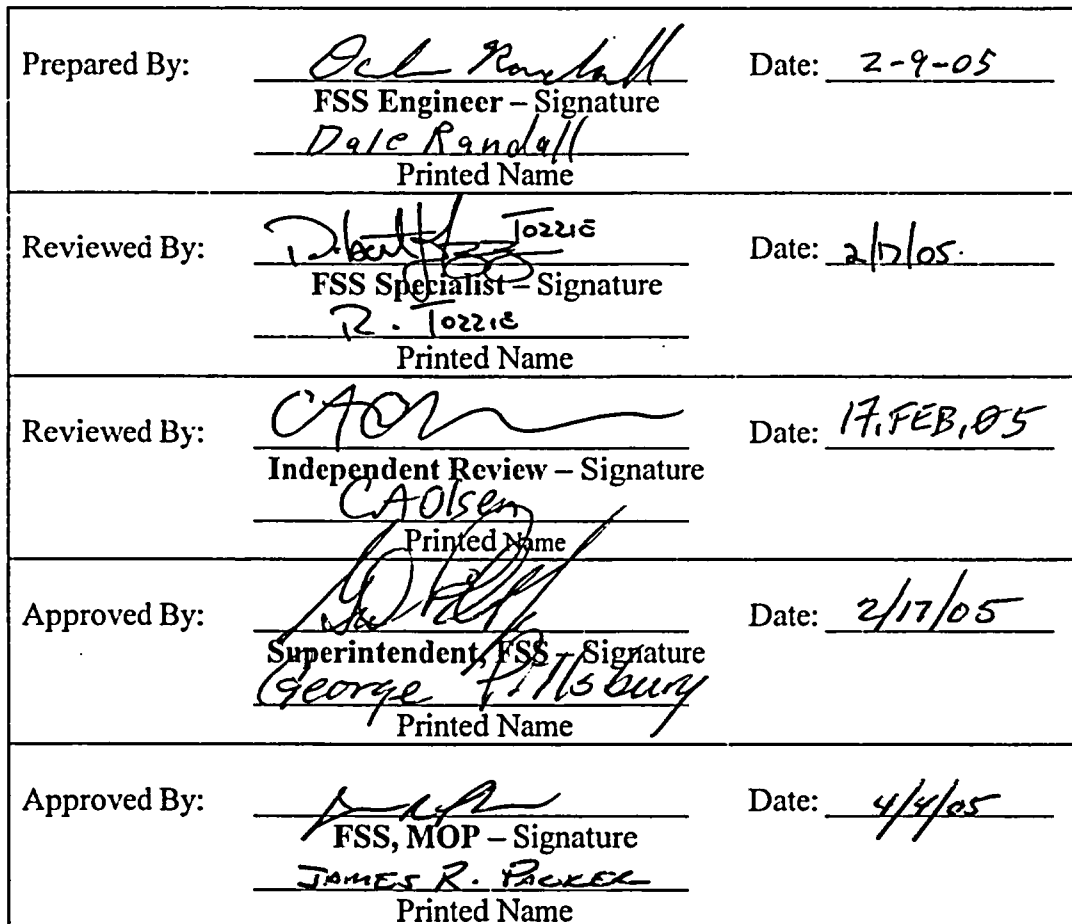 Prepared By: Dale Randall Date: 2-9-05
FSS Engineer – Signature
Dale Randall
Printed Name
Reviewed By: Tozzie Date: 2/17/05.
FSS Specialist – Signature
R. Tozzie
Printed Name
Reviewed By: CAO Date: 17, FEB, 05
Independent Review – Signature
CAOlsen
Printed Name
Approved By: Date: 2/17/05
Superintendent, FSS – Signature
George Pillsbury
Printed Name
Approved By: Date: 4/4/05
FSS, MOP – Signature
JAMES R. PACKER
Printed Name